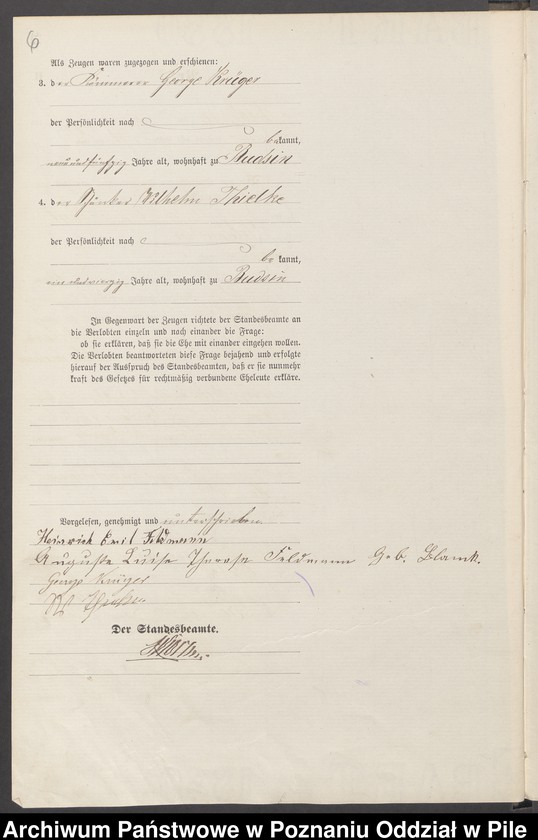 6
Als Zeugen waren zugezogen und erschienen:
3. der Kämmerer George Krüger
der Persönlichkeit nach
bekannt,
neunundfünfzig Jahre alt, wohnhaft zu Budsin
4. der Wilhelm Thielke
der Persönlichkeit nach
be kannt,
Jahre alt, wohnhaft zu Budsin
In Gegenwart der Zeugen richtete der Standesbeamte an
die Verlobten einzeln und nach einander die Frage:
ob sie erklären, daß sie die Ehe mit einander eingehen wollen.
Die Verlobten beantworteten diese Frage bejahend und erfolgte
hierauf der Ausspruch des Standesbeamten, daß er sie nunmehr
kraft des Gesetzes für rechtmäßig verbundene Eheleute erkläre.
Vorgelesen, genehmigt und unterschrieben
Heinrich Emil Feldmann
Auguste Luise Therese Feldmann Geb. Blank.
George Krüger
Der Standesbeamte.
Archiwum Państwowe w Poznaniu Oddział w Pile